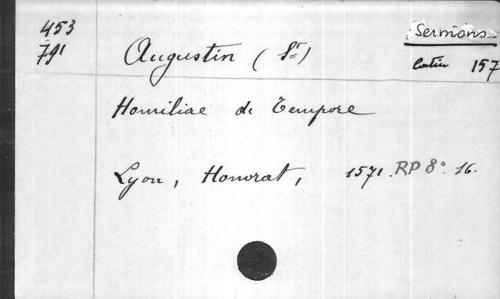 453
791
Sermons
Augustin (St)
latin 157
Homiliae de Tempore
Lyon, Honorat, 1571. RP 8° 16.